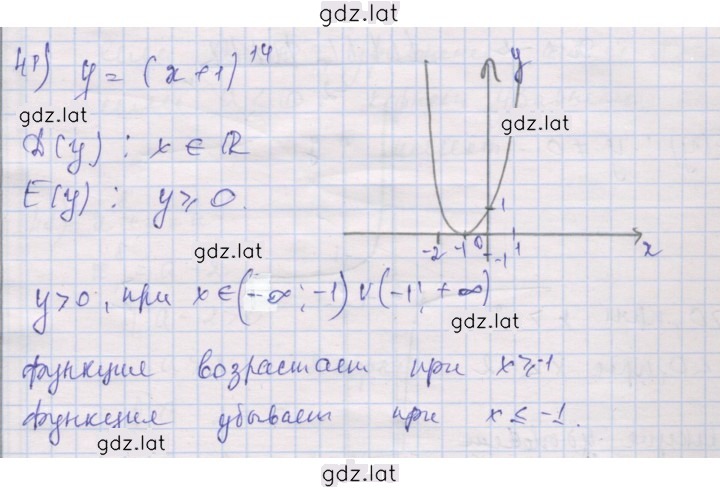 gdz.lat
41) y = (x+1)^14
y
gdz.lat
gdz.lat
D(y) : x ∈ R
E(y) : y ≥ 0.
1
gdz.lat
-2 -1 0 1 x
-1
y > 0, при x ∈ (-∞; -1) ∪ (-1; +∞)
gdz.lat
функция возрастает при x ≥ -1
функция убывает при x ≤ -1.
gdz.lat
gdz.lat